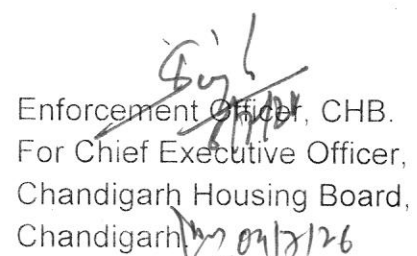 Enforcement Officer, CHB.
For Chief Executive Officer,
Chandigarh Housing Board,
Chandigarh.